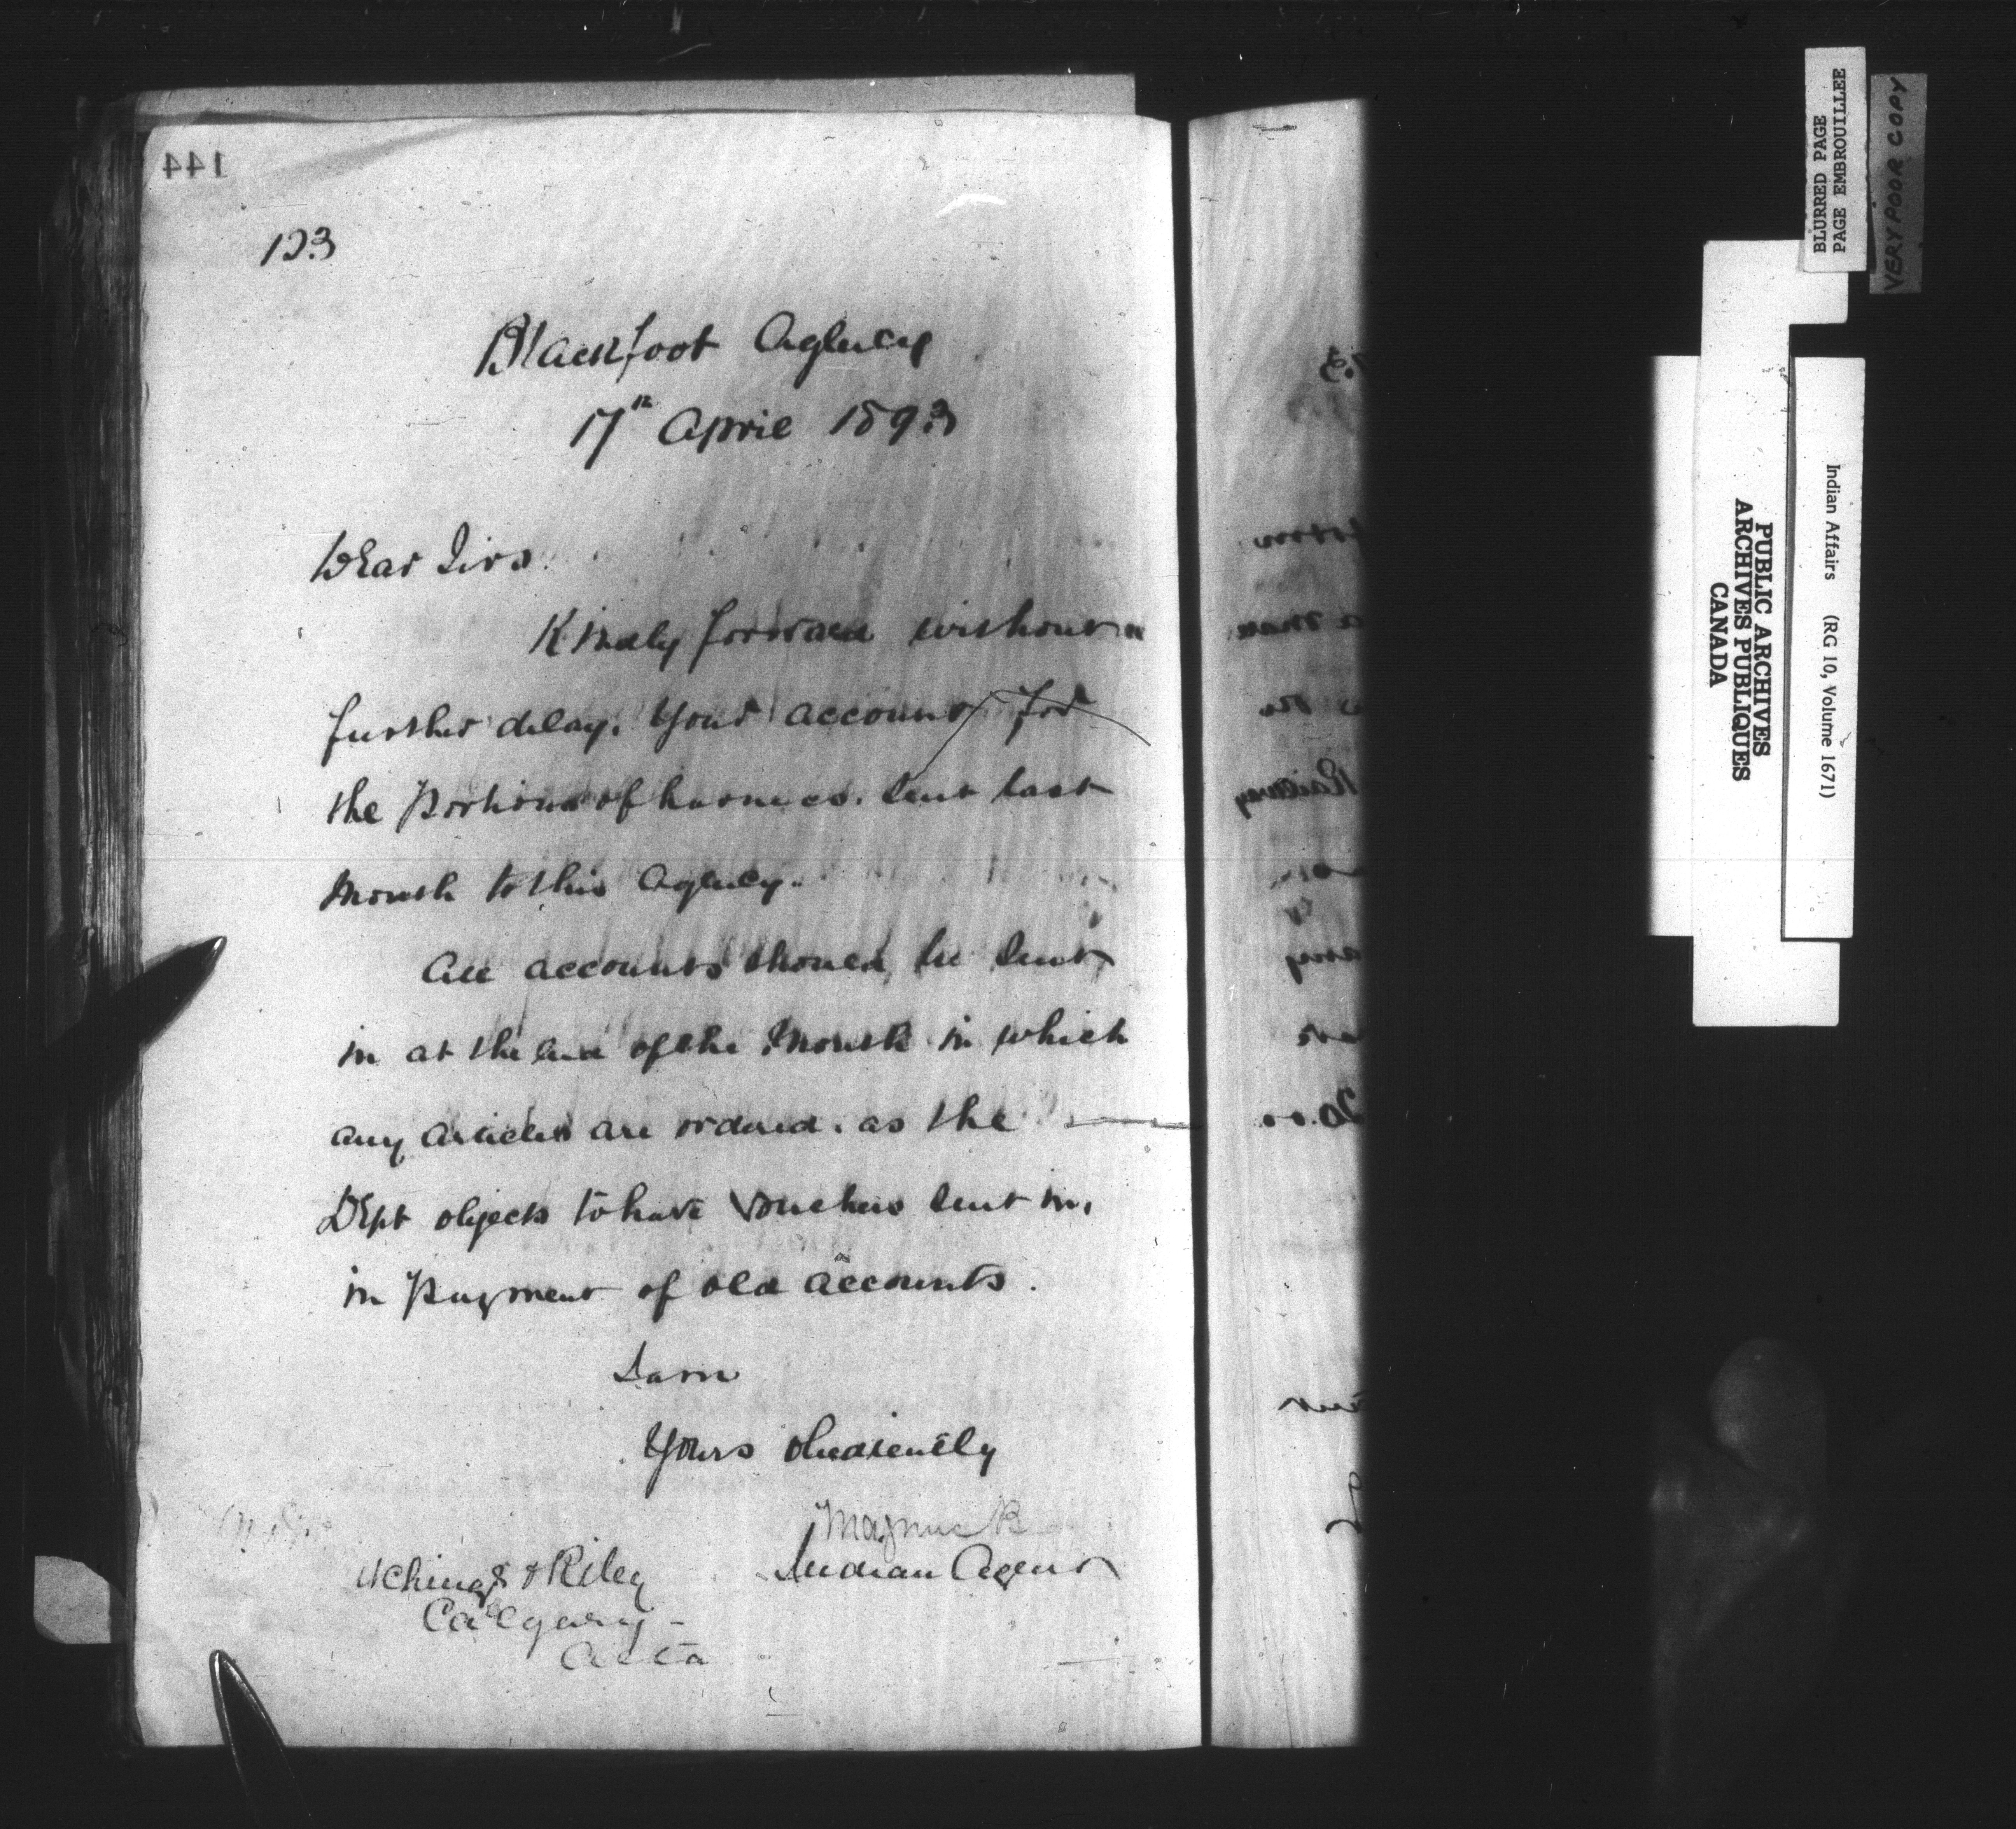 144
123
Blackfoot Agency
17th April 1893
Dear Sirs.
Kindly forward without
further delay. Your account for
the Portions of harness. sent last
Month to this Agency.
All accounts should be sent
in at the end of the Month in which
any articles are ordered. as the
Dept objects to have Vouchers sent in,
in Payment of old accounts.
I am
Yours obediently
Magnus B
Indian Agent
& Riley
Calgary
Alta
Railway
BLURRED PAGE
PAGE EMBROUILLEE
VERY POOR COPY
PUBLIC ARCHIVES
ARCHIVES PUBLIQUES
CANADA
Indian Affairs (RG 10, Volume 1671)